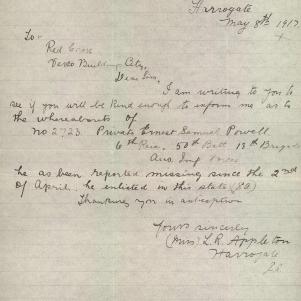 Harrogate
May 8th 1917
To
Red Cross
Verco Building City.
Dear Sirs,
I am writing to you to
see if you will be kind enough to inform me as to
the whereabouts of
no 2723. Private Ernest Samuel Powell
6th Rein. 50th Batt 13th Brigade
Aus. Imp Forces
he as been reported missing since the 2nd
of April. he enlisted in this state (SA)
Thanking you in antiception
Yours sincerely
(Miss) L. R. Appleton
Harrogate
S.A